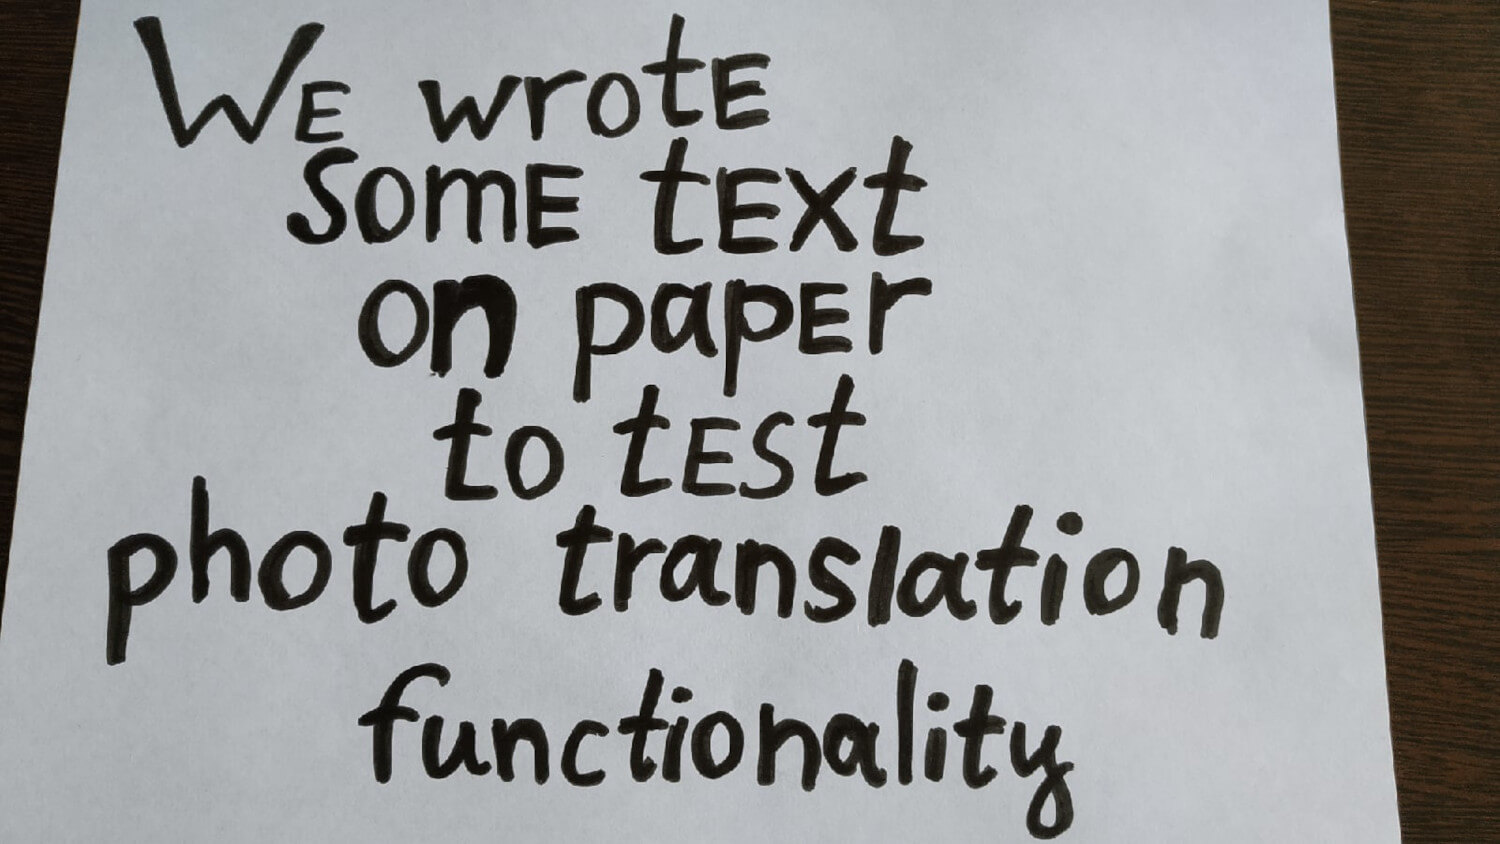 WE wrotE
somE tExt
on papEr
to tEst
photo translation
functionality